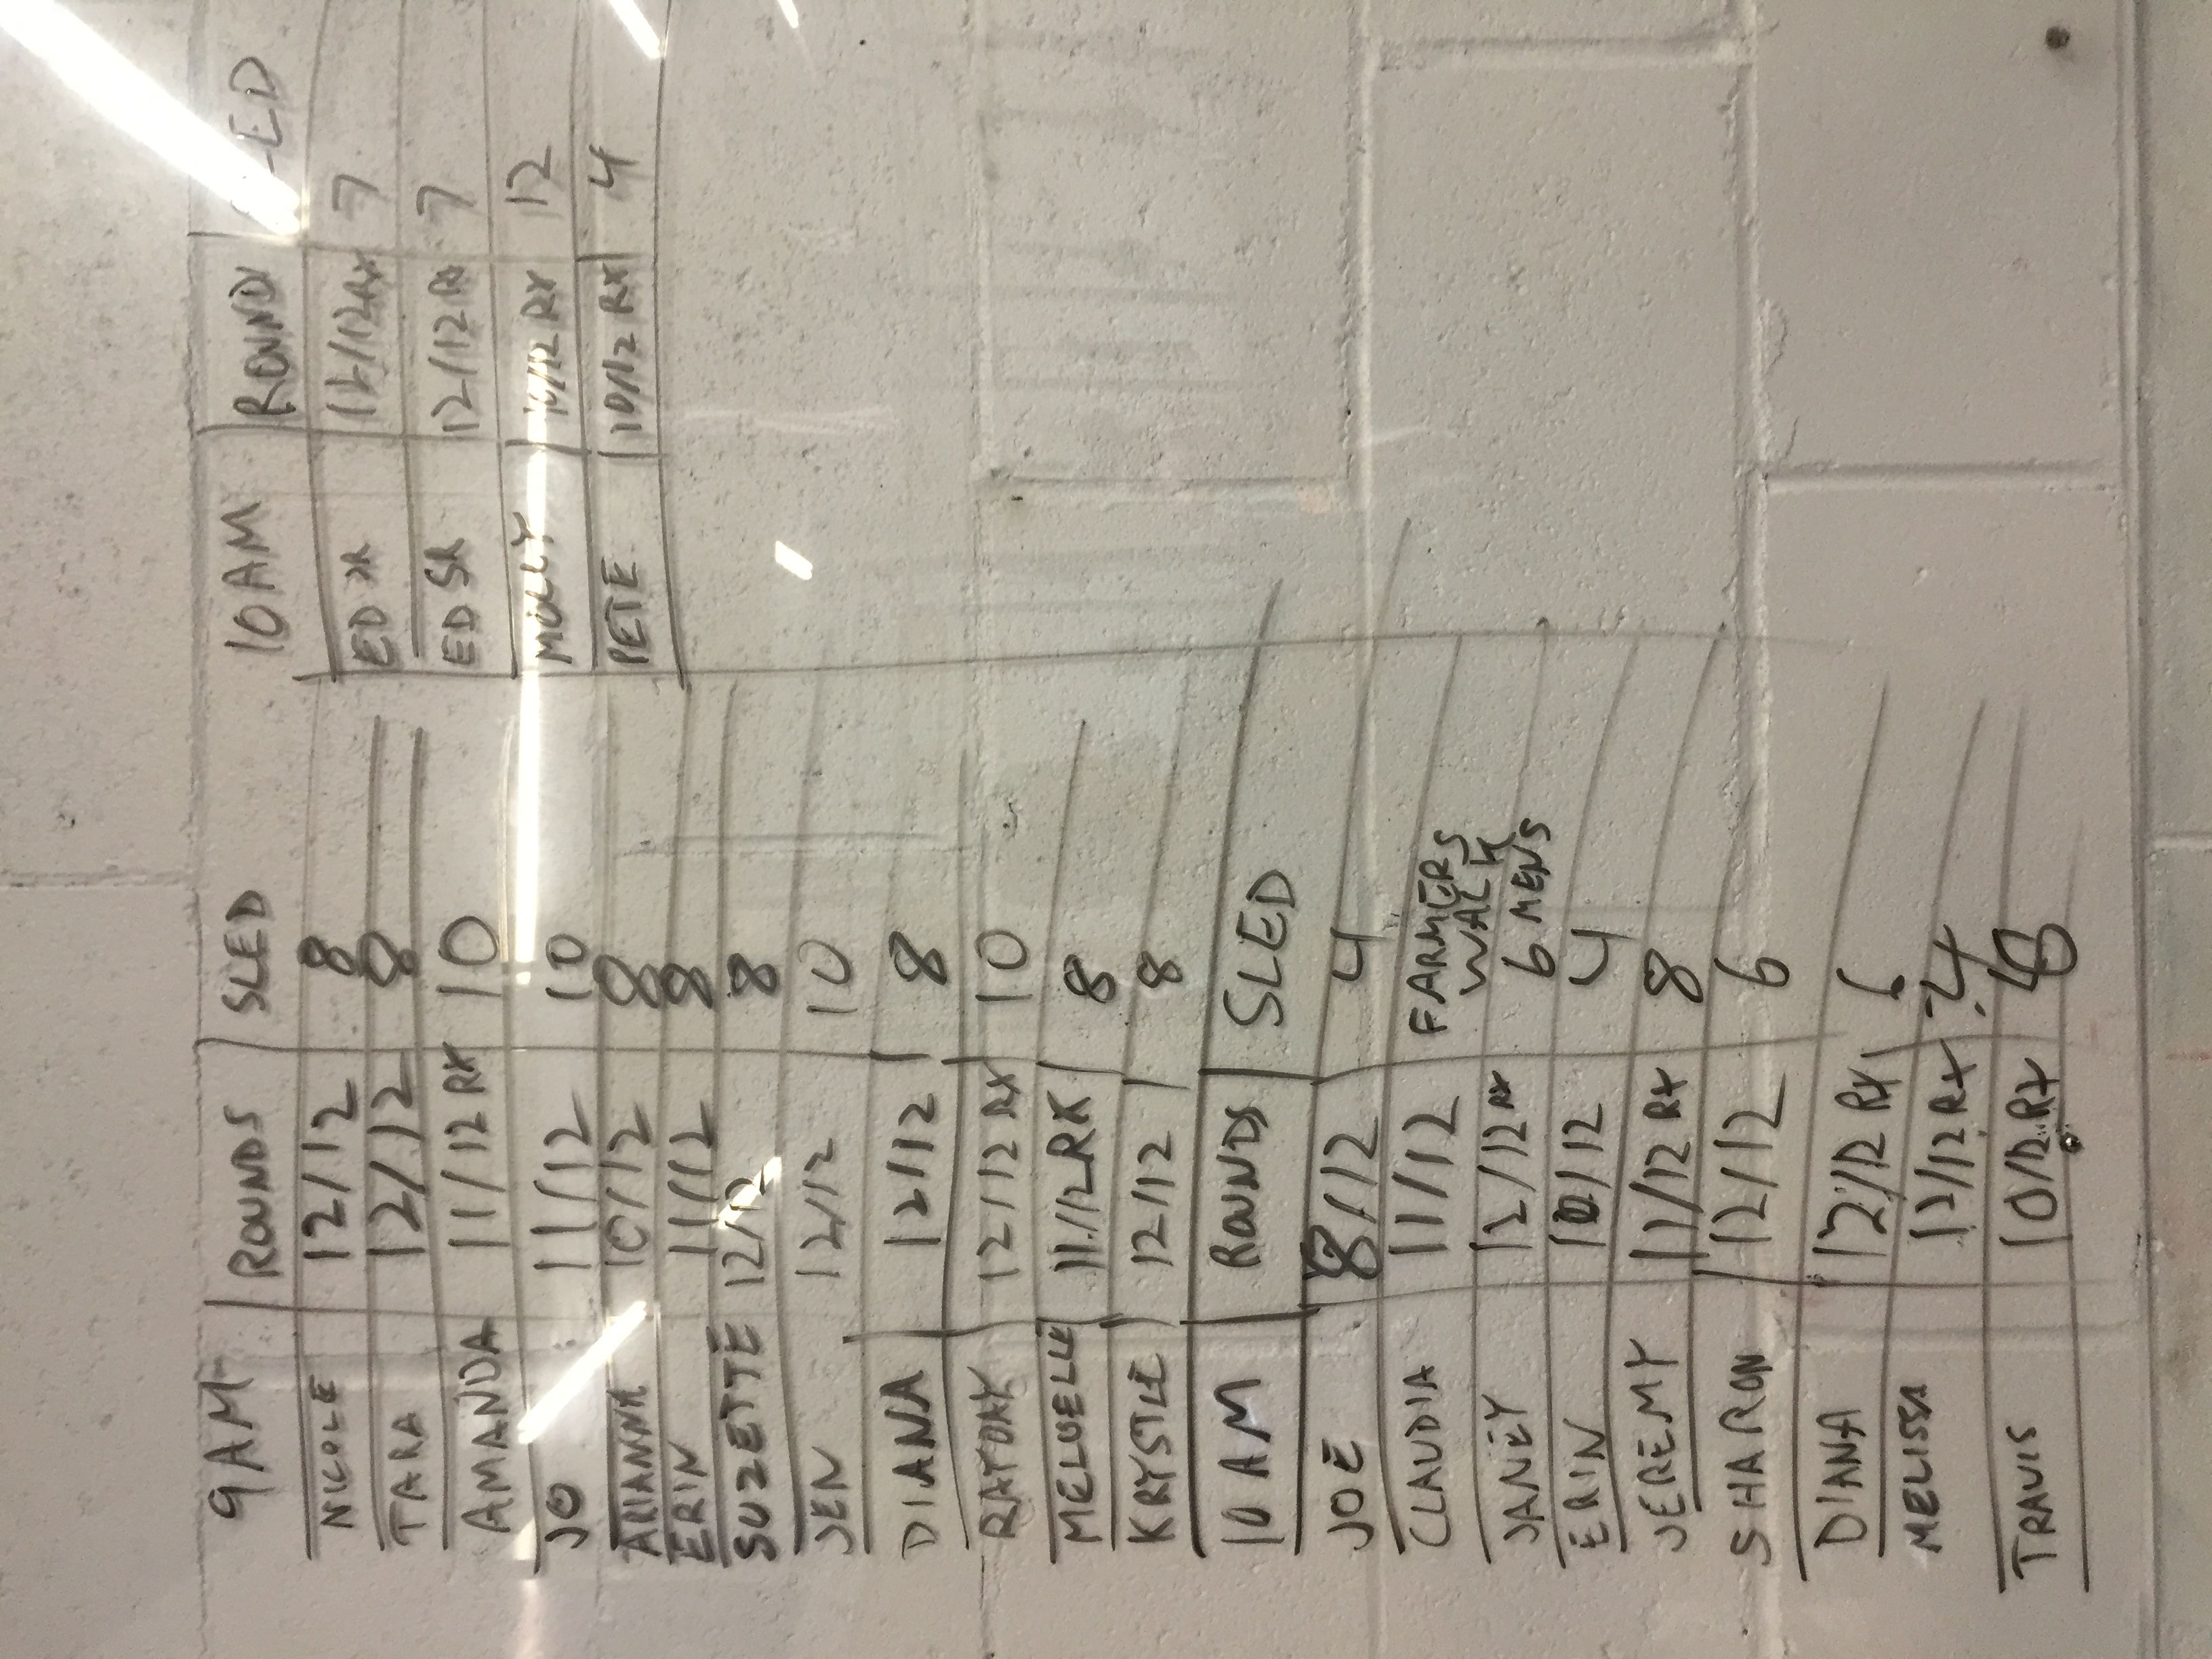 9AM ROUNDS SLED
NICOLE 12/12 8
TARA 12/12 8
AMANDA 11/12 RX 10
JO 11/12 10
ARIANNA 10/12 8
ERIN 11/12 8
SUZETTE 12/12 8
JEN 12/12 10
DIANA 12/12 8
RAYDAY 12/12 RX 10
11/12 RX 8
KRYSTLE 12/12 8
10 AM ROUNDS SLED
JOE 8/12 4
CLAUDIA 11/12 FARMERS WALK
JANEY 12/12 RX 6 MENS
ERIN 10/12 4
JEREMY 11/12 RX 8
SHARON 12/12 6
DIANA 12/12 RX 6
MELISSA 12/12 RX 4
TRAVIS 10/12 RX
10AM ROUND
ED JR 12/12 RX 7
ED SR 12/12 RX 7
MOLLY 10/12 RX 12
PETE 10/12 RX 4